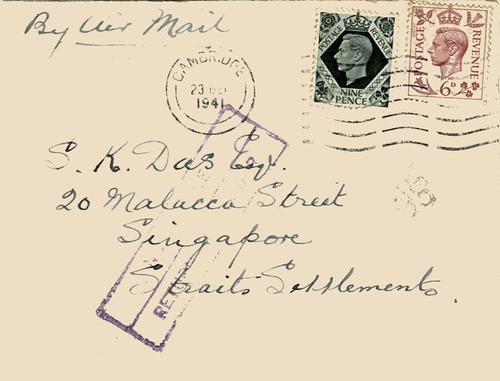 By Air Mail
POSTAGE REVENUE
NINE PENCE
POSTAGE REVENUE
6D
CAMBRIDGE
23 DEC
1941
S. K. Das Esq.
20 Malacca Street
Singapore
Straits Settlements.